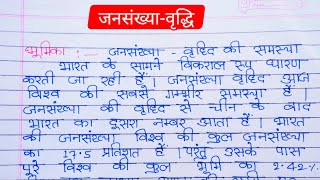 जनसंख्या-वृद्धि
भूमिका :- जनसंख्या - वृद्दि की समस्या
भारत के सामने विकराल रूप धारण
करती जा रही हैं। जनसंख्या वृद्दि आज
विश्व की सबसे गम्भीर समस्या हैं।
जनसंख्या की वृद्दि से चीन के बाद
भारत का दुसरा नम्बर आता हैं। भारत
की जनसंख्या विश्व की कुल जनसंख्या
का 17.5 प्रतिशत हैं परंतु उसके पास
पूरे विश्व की कुल भूमि का 2.42%